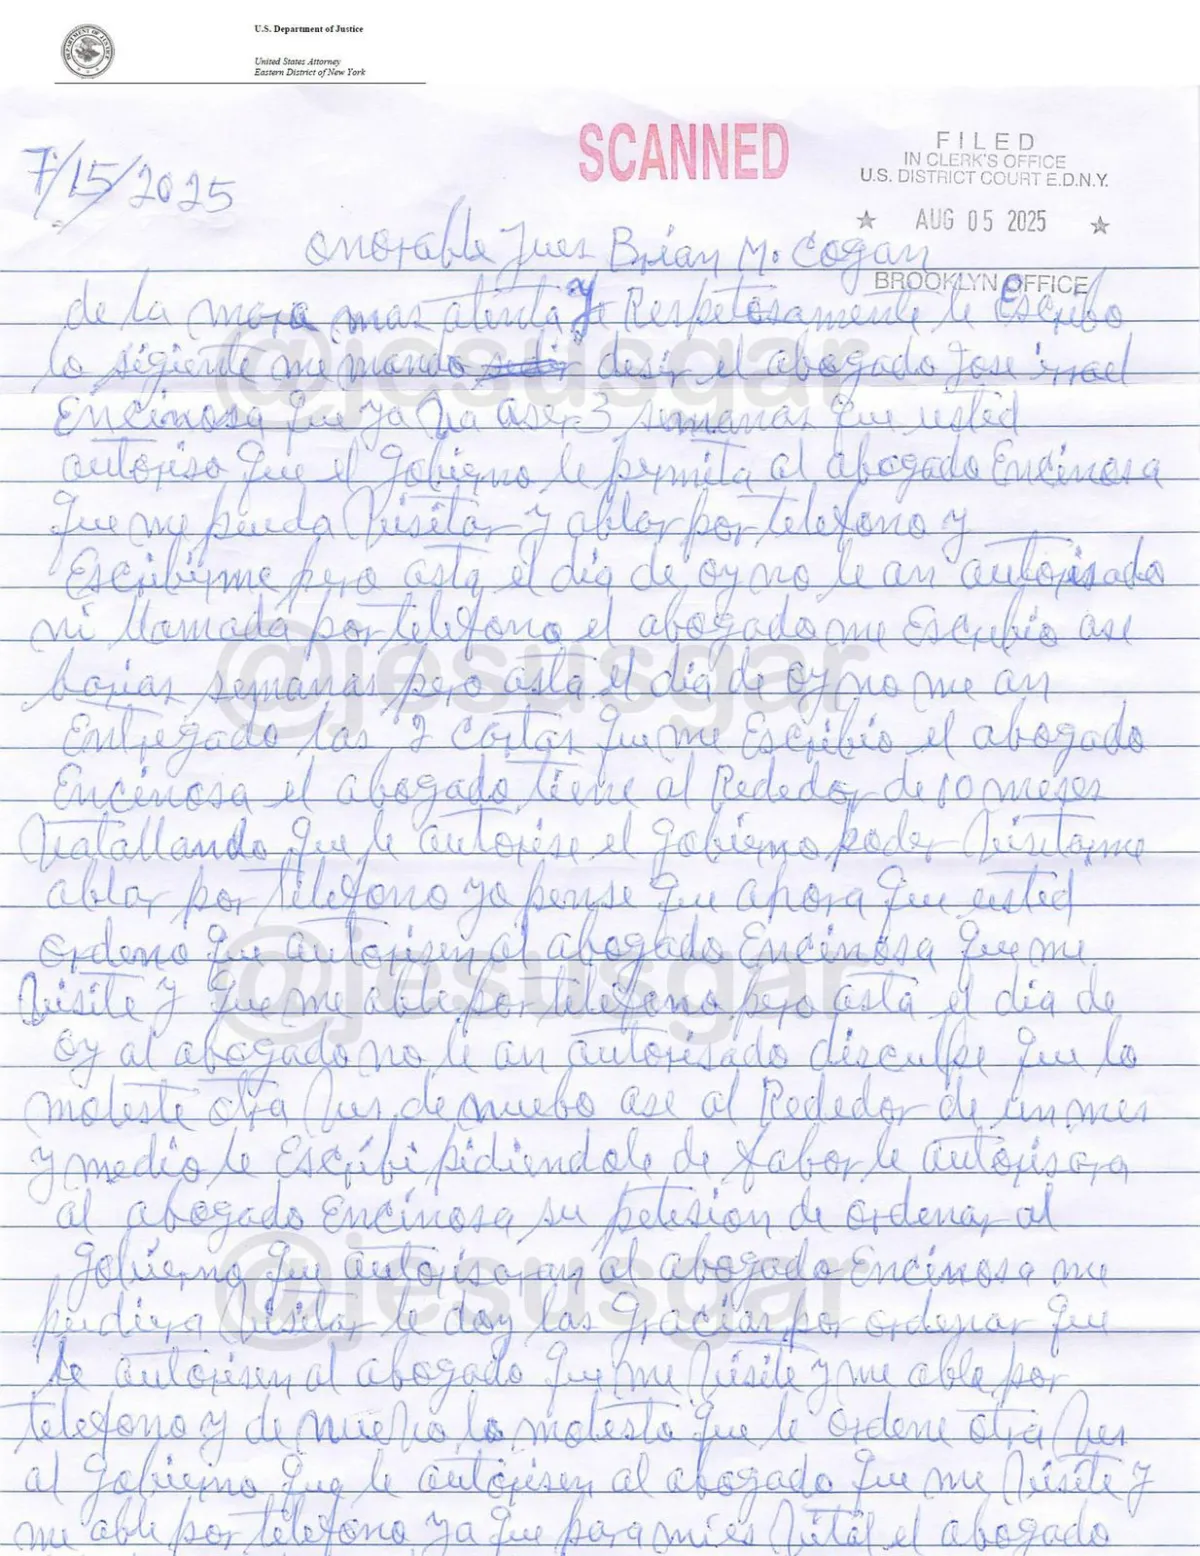 U.S. Department of Justice
United States Attorney
Eastern District of New York
SCANNED
FILED
IN CLERK'S OFFICE
U.S. DISTRICT COURT E.D.N.Y.
★ AUG 05 2025 ★
BROOKLYN OFFICE
7/15/2025
onorable Jues Brian M. Cogan
de la mora mas atenta y Respetosamente le Escribo
lo sigiente me mando desir el abogado Jose
Encinosa que ya ba aser 3 semanas que usted
autoriso que el gobierno le permita al abogado Encinosa
que me pueda Visitar y ablar por telefono y
Escribirme pero asta el dia de oy no le an autorisado
ni llamada por telefono el abogado me Escribio ase
barias semanas pero asta el dia de oy no me an
Entregado las 2 cartas que me Escribio el abogado
Encinosa el abogado tiene al Rededor de 10 meses
Vatallando que le autorise el gobierno poder Visitarme
ablar por telefono yo pense que ahora que usted
ordeno que autorisen al abogado Encinosa que me
Visite y que me able por telefono pero asta el dia de
oy al abogado no le an autorisado disculpe que lo
moleste otra Ves de nuebo ase al Rededor de un mes
y medio le Escribi pidiendole de fabor le autorisara
al abogado Encinosa su petision de ordenar al
gobierno que autorisaran al abogado Encinosa me
pudiera Visitar le doy las gracias por ordenar que
le autorisen al abogado que me Visite y me able por
telefono y de nuebo lo molesto que le ordene otra Ves
al gobierno que le autorisen al abogado que me Visite y
me able por telefono ya que para mi es Vital el abogado
@jesusgar
@jesusgar
@jesusgar
@jesusgar